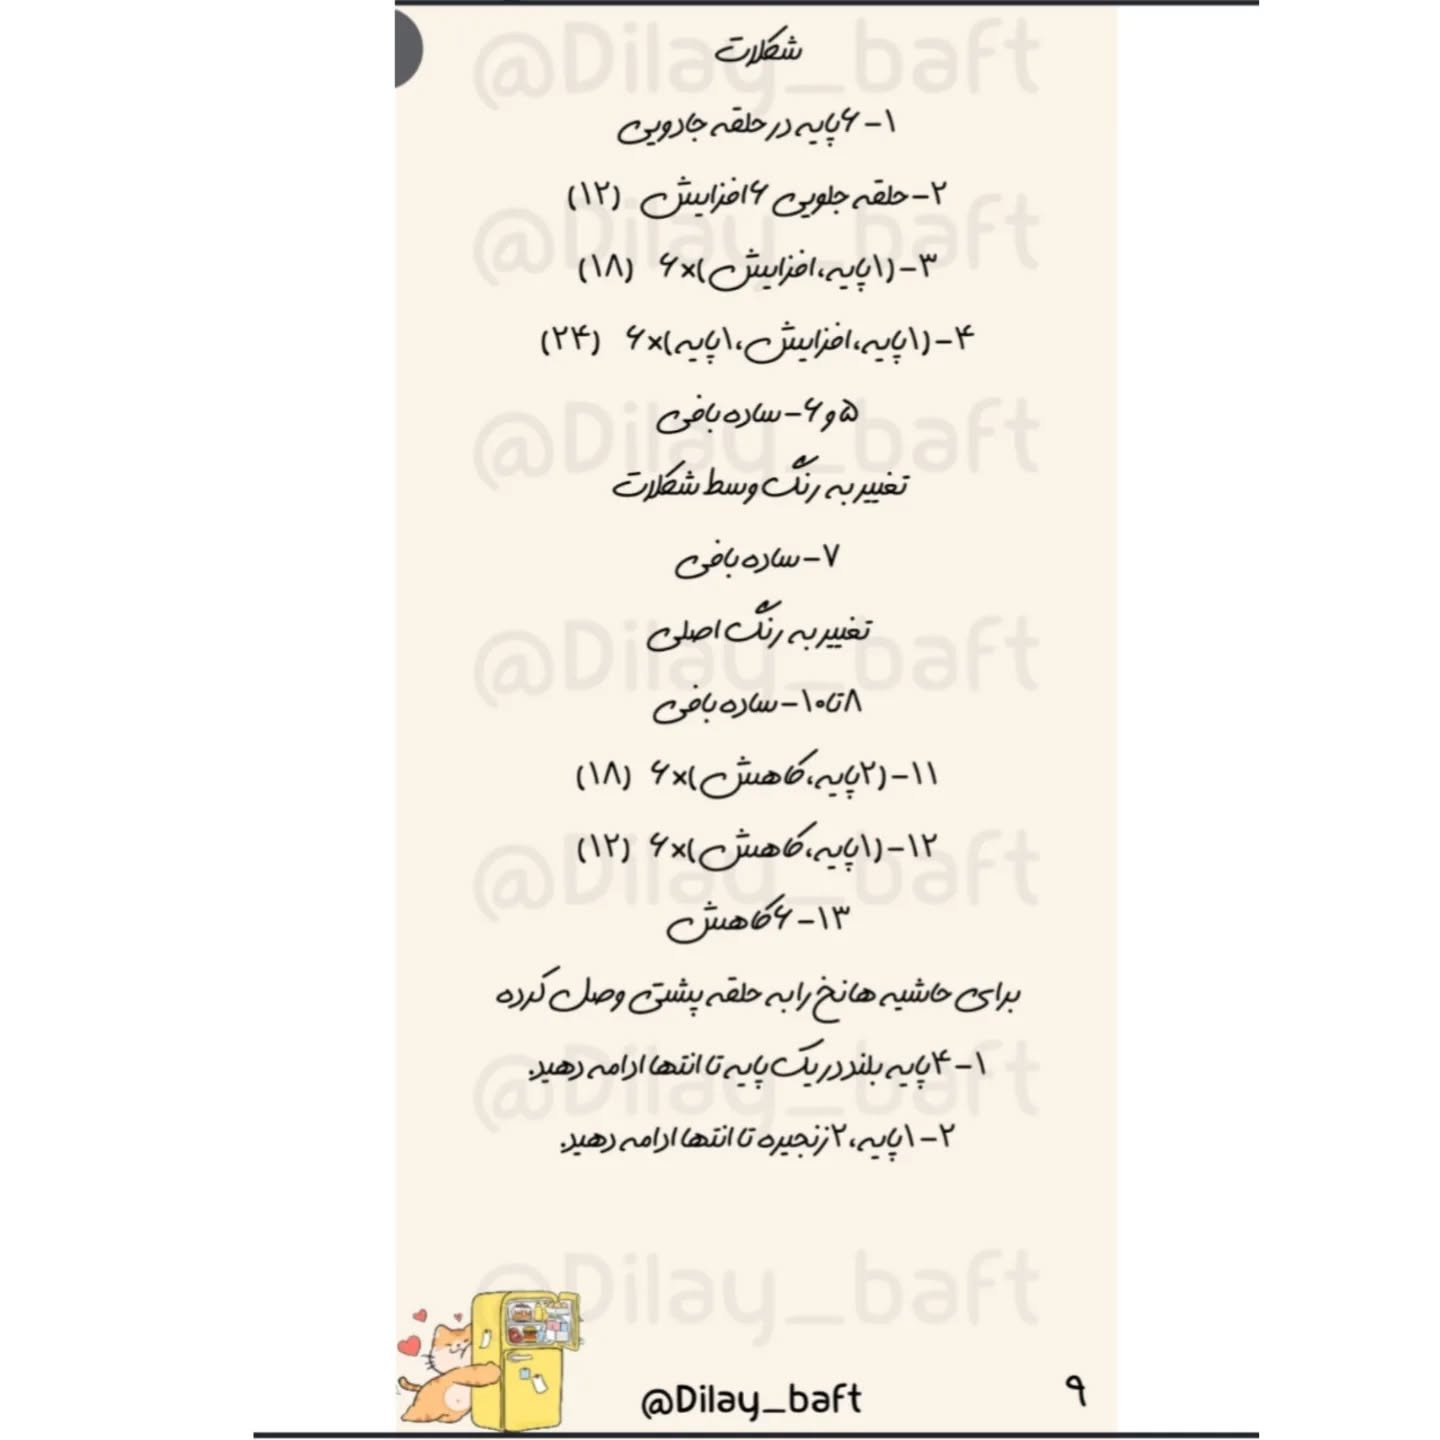 شکلات
۱- ۶پایه در حلقه جادویی
۲- حلقه جلویی ۶افزایش (۱۲)
۳- (۱پایه،افزایش)×۶ (۱۸)
۴- (۱پایه،افزایش،۱پایه)×۶ (۲۴)
۵و۶- ساده بافی
تغییر به رنگ وسط شکلات
۷- ساده بافی
تغییر به رنگ اصلی
۸تا۱۰- ساده بافی
۱۱- (۲پایه،کاهش)×۶ (۱۸)
۱۲- (۱پایه،کاهش)×۶ (۱۲)
۱۳- ۶کاهش
برای حاشیه ها نخ را به حلقه پشتی وصل کرده
۱- ۴پایه بلند در یک پایه تا انتها ادامه دهید.
۲- ۱پایه،۲زنجیره تا انتها ادامه دهید.
@Dilay_baft
۹
@Dilay_baft
@Dilay_baft
@Dilay_baft
@Dilay_baft
@Dilay_baft
@Dilay_baft
@Dilay_baft